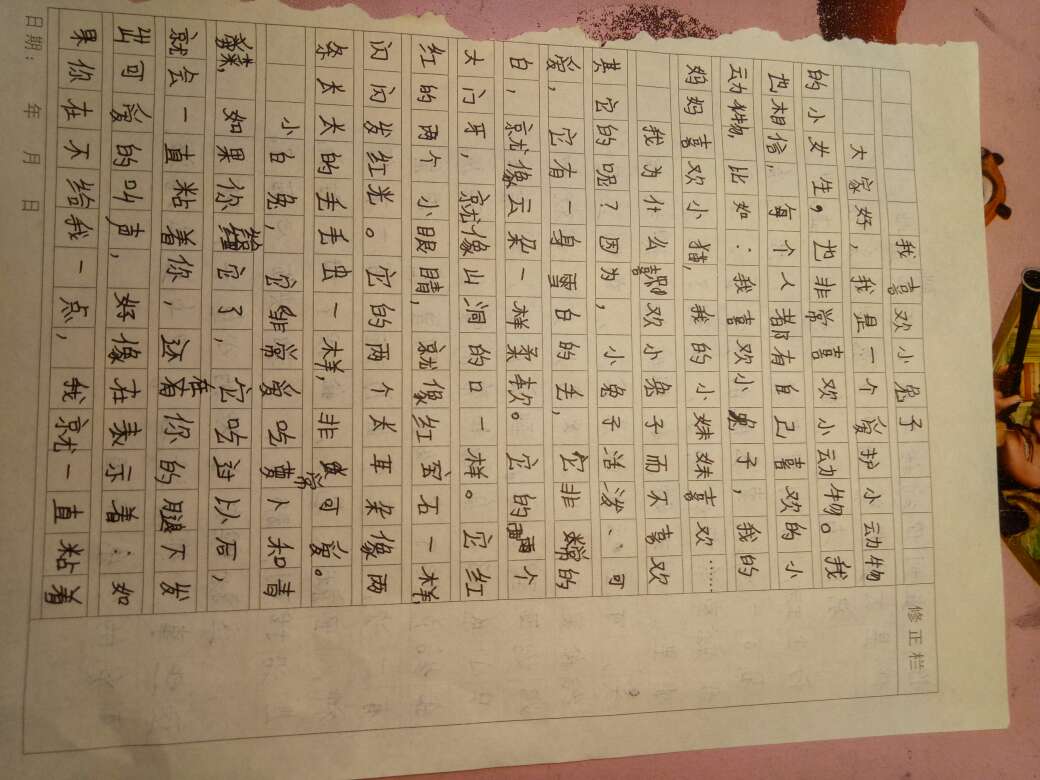 我喜欢小兔子
大家好，我是一个爱护小动物
的小女生。也非常喜欢小动物。我
也相信，每个人都有自己喜欢的小
动物，比如：我喜欢小兔子，我的
妈妈喜欢小猫，我的小妹妹喜欢……
我为什么喜欢小兔子而不喜欢
其它的呢？因为，小兔子活泼、可
爱，它有一身雪白的毛，它非常的
白，就像云朵一样柔软。它的两个
大门牙，就像山洞的口一样。它红
红的两个小眼睛，就像红宝石一样，
闪闪发红光。它的两个大耳朵像两
条大大的毛毛虫一样，非常可爱。
小白兔，它非常爱吃萝卜和青
菜，如果你给它了，它吃过以后，
就会一直粘着你，还在你的腿下发
出可爱的叫声，好像在表示着：如
果你在不给我一点，我就一直粘着
修正栏
日期： 年 月 日